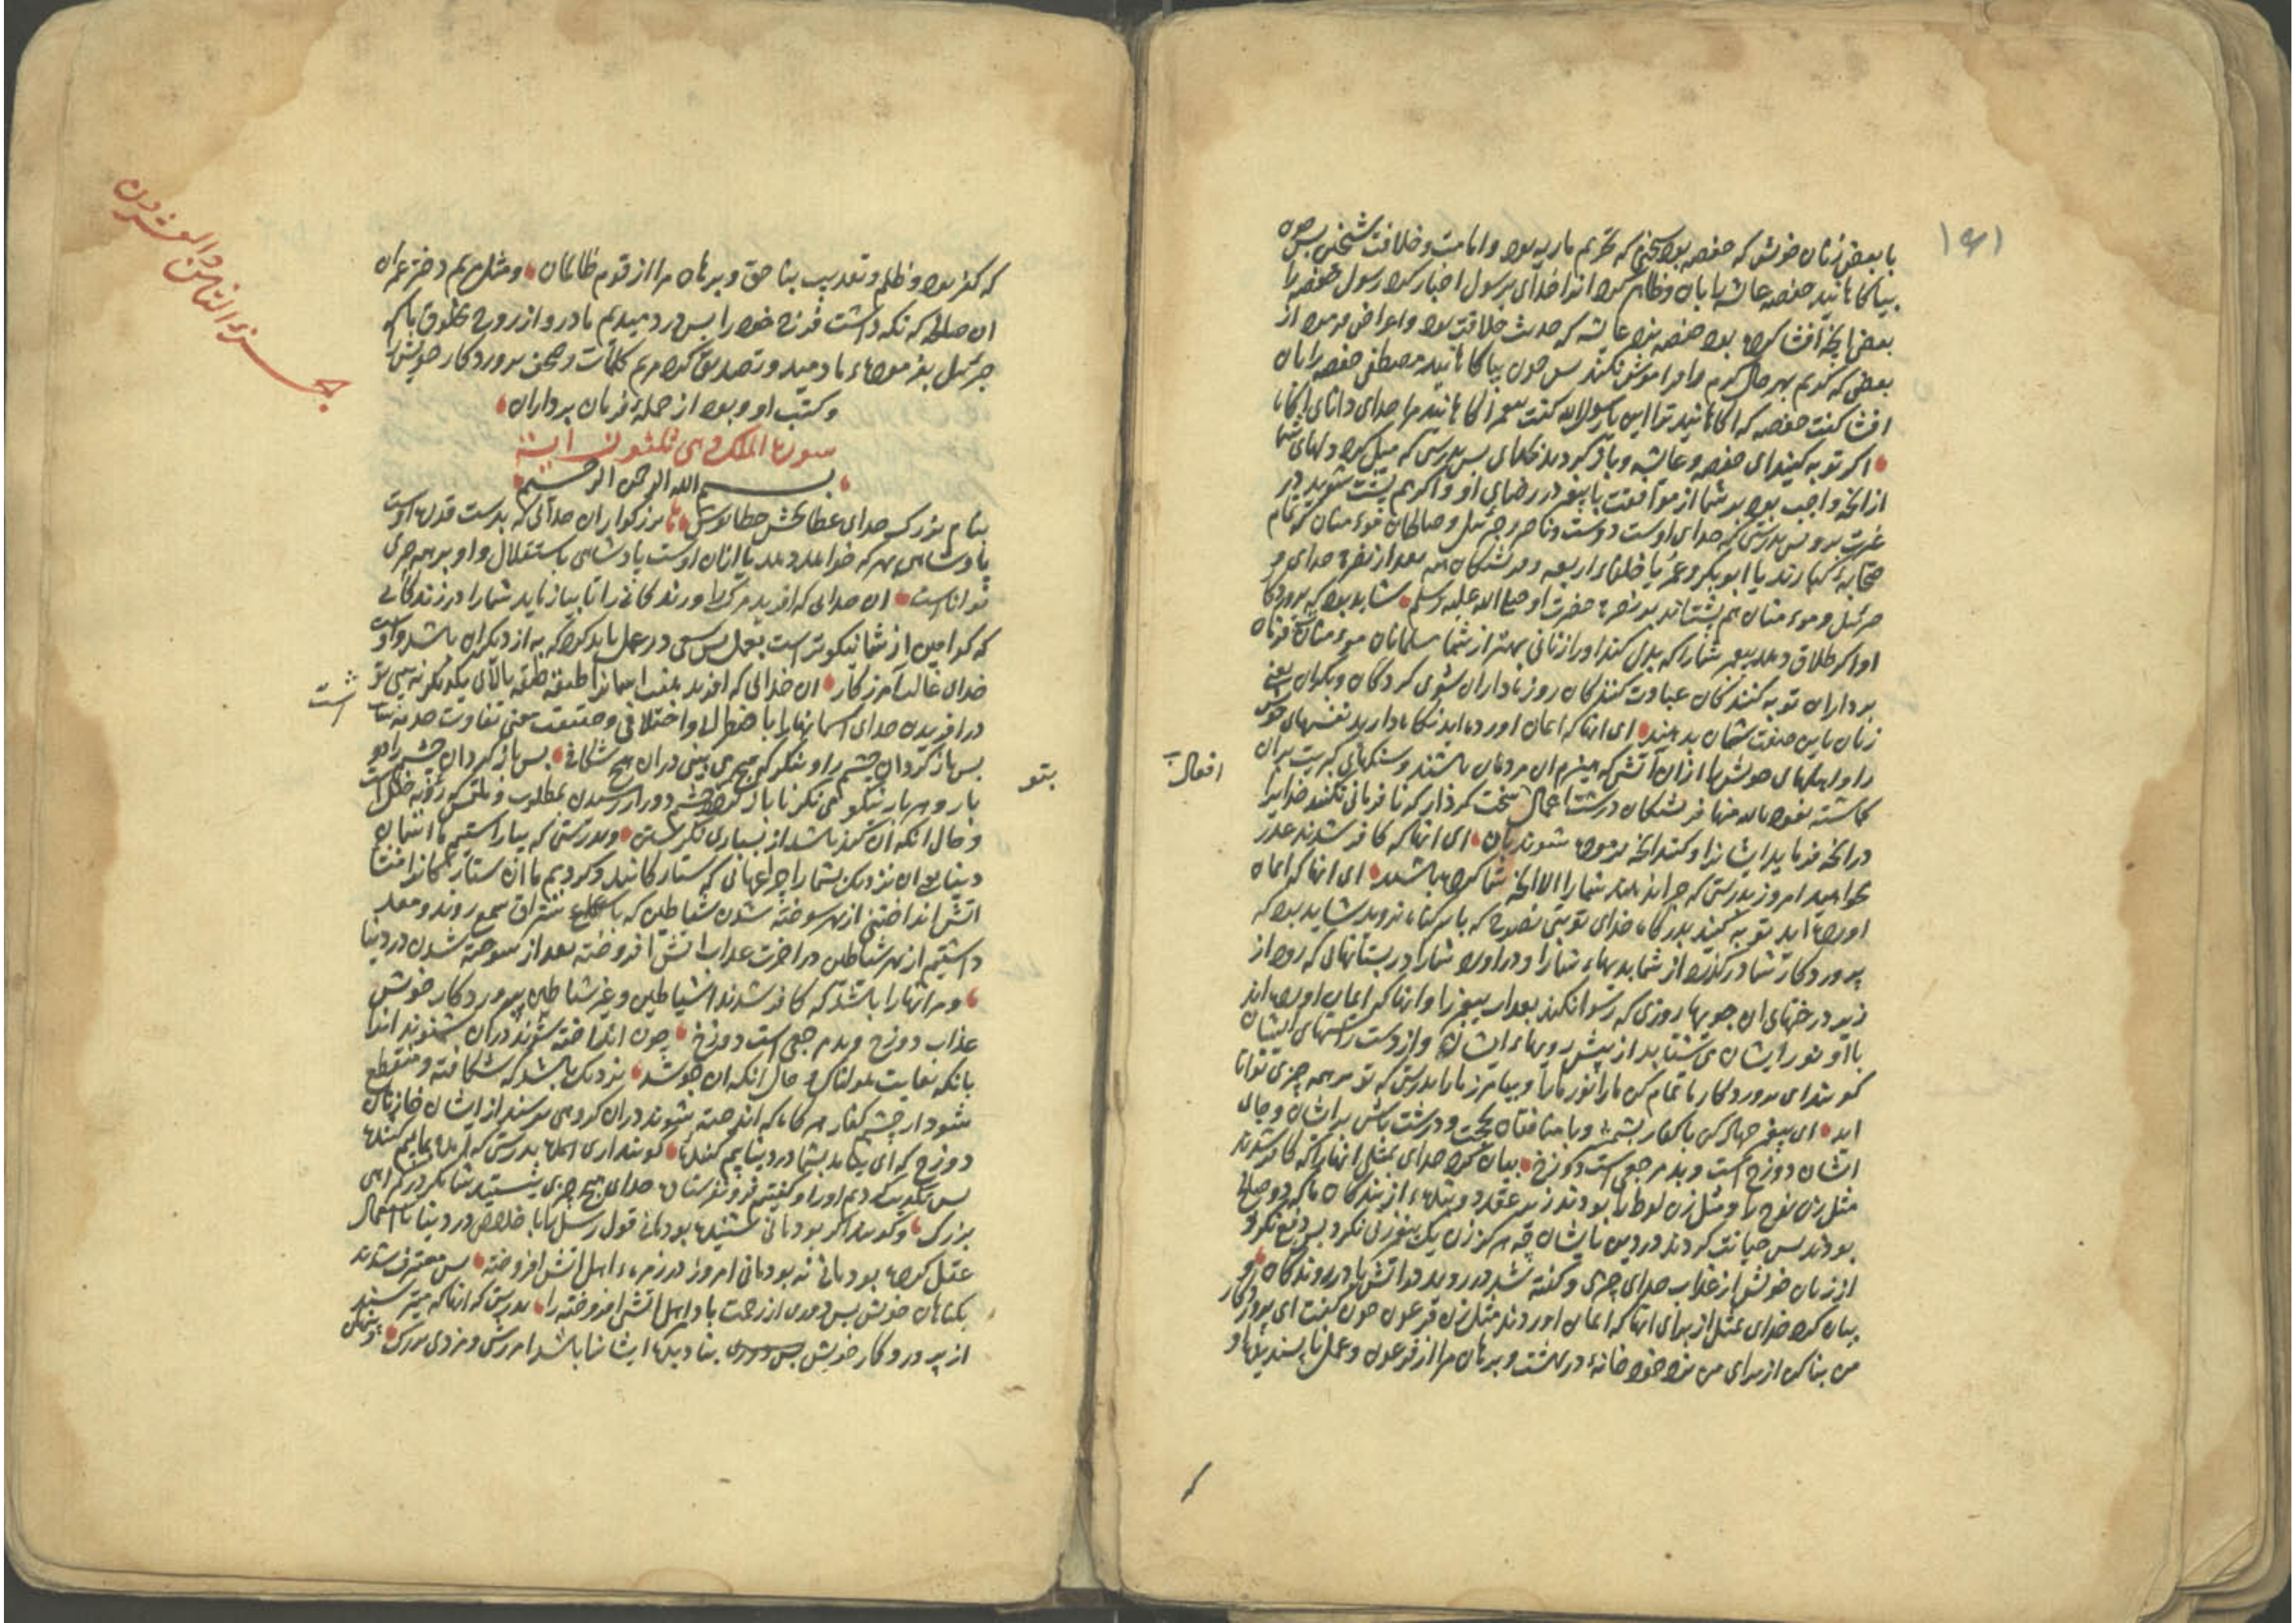 ۱۹۱
با بعضی زنان خویش که حفصه بود سخنی که تحریم ماریه بود و امامت و خلافت شیخین پس چون
بیاکاهانید حفصه عایشه را بان و ظاهر کرد انرا خدای بر رسول اخبار کرد رسول حفصه را
بعض انچه افشا کرده بود حفصه نزد عایشه که حدیث خلافت بود و اعراض فرمود از
بعضی که کویم بهر حال کرم و امر اموش نکند پس چون بیاکاهانید مصطفی حفصه را بان
افشا کفت حفصه که اکاهانید ترا این یا رسول الله کفت پیغمبر اکاهانید مرا خدای دانای اکاه
اکر توبه کنید ای حفصه و عایشه و باز کردید بخدای پس بدرستی که میل کرد دلهای شما
ازانچه واجب بود بر شما از موافقت با پیغمبر در رضای او و اکر هم پشت شوید در
غیرت برو پس بدرستی که خدای اوست دوست و ناصر و جبرئیل و صالحان مؤمنان که تمام
صحابهٔ کبارند یا ابوبکر و عمر یا خلفاء اربعه و فرشتکان همه بعد از نصرة خدای و
جبرئیل و مومنان هم پشتانند بر نصرة حضرت او صلی الله علیه وسلم شاید بود که پروردکار
او اکر طلاق دهد پیغمبر شما را که بدل کند او را زنانی بهتر از شما مسلمانان مومنان فرمان
برداران توبه کنندکان عبادت کنندکان روزه داران شوی کردکان و بکران یعنی
زنان باین صفت شمان بدهند ای انها که ایمان اورده اید نکاه دارید نفسهای خویش
را و اهلهای خویش را ازان آتشی که هیزم ان مردمان باشند و سنکهای کبریت بران
کماشته نعوذ بالله منها فرشتکان درشت اعمال سخت کردار که نافرمانی نکنند خدایرا
درانچه فرماید ایشانرا و کنند انچه فرموده شوند بان ای انها که کافر شدند عذر
مخواهید امروز بدرستی که جزا ندهند شما را الا انچه شما کرده باشید ای انها که ایمان
اورده اید توبه کنید بدرکاه خدای توبتی نصوح که باز سر کناه نروید شاید بود که
پروردکار شما درکذراند از شما بدیهاء شما را و دراورد شما را در بستانهائی که رود از
زیر درختهای ان جویها روزی که رسوا نکند بعذاب پیغمبر را و انها که ایمان اورده اند
با او نور ایشان می شتابد از پیش رویهاء ایشان و از دست راستهای ایشان
کویند ای پروردکار ما تمام کن ما را نور ما را و بیامرز ما را بدرستی که تو بر همه چیزی توانا
اید ای پیغمبر جهاد کن با کفار بشمشیر و با منافقان بحجت و درشت باش بر ایشان و جای
ایشان دوزخ است و بد مرجعی است دوزخ بیان کرد خدای مثلی انها را که کافر شدند
مثل زن نوح را و مثل زن لوط را بودند زیر عقد دو بنده از بندکان ما که دو صالح
بودند پس خیانت کردند در دین با ایشان چه هرکز زن یک پیغمبر زنی نکرد پس دفع نکرد
از زنان خویش از عذاب خدای چیزی و کفته شد درروید در آتش با درروندکان و
بیان کرد خدای مثل از برای انها که ایمان اوردند مثل زن فرعون چون کفت ای پروردکار
من بنا کن از برای من نزد خود خانهٔ در بهشت و برهان مرا از فرعون و عمل ناپسندیده او
افعال
که کفر بود و ظلم و تعذیب بناحق و برهان مرا از قوم ظالمان و مثل مریم دختر عمران
ان صالحه که نکه داشت فرج خود را پس دردمیدیم ما درو از روح مخلوق پاک
جبرئیل بفرمودهء ما دمید و تصدیق کرد مریم کلمات و صحف پروردکار خویش
و کتب او و بود از جملهٔ فرمان برداران
سورة الملک و هی ثلثون ایة
بسم الله الرحمن الرحیم
بنام بزرک خدای عطا بخش خطا پوش بزرکوار ان خدائی که بدست قدرت اوست
پادشاهی بهر که خواهد دهد یا ازان اوست پادشاهی باستقلال و او بر همه چیزی
تواناست ان خدائی که افرید مرک و زندکانی را تا بیازماید شما را در زندکانی
که کدامین از شما نیکوتر است بعمل پس سعی در عمل باید کرد که به از دیکران باشد و اوست
خدای غالب آمرزکار ان خدائی که افرید هفت اسمانرا طبقه طبقه بالای یکدیکر نه بینی تو
در افریدن خدای اسمانها را با اضطراب و اختلافی و حقیقت معنی تفاوت
پس باز کردان چشم را و بنکر که هیچ می بینی دران هیچ شکافی پس باز کردان چشم را دو
بار و هر بار نیکو می نکر تا باز کردد چشم دور از رسیدن بمطلوب و ملتمس که رؤیة خلل است
و حال انکه ان کند باشد از بسیاری نکریستن و بدرستی که بیاراستیم ما اسمان
دنیا یعنی ان نزدیک بشما را چراغهائی که ستارکانند و کردیم ما ان ستارکانرا منشا
اتش انداختنی از بهر سوخته شدن شیاطین که باستراق سمع روند و معد
داشتیم از بهر شیاطین در اخرت عذاب اتش افروخته بعد از سوخته شدن در دنیا
و مر انها را باشد که کافر شدند از شیاطین و غیر شیاطین بپروردکار خویش
عذاب دوزخ و بد مرجعی است دوزخ چون انداخته شوند دران شنوند انرا
بانکه بغایت هولناک و حال انکه ان جوشد نزدیک باشد که شکافته و منقطع
شود از خشم کفار هر کاه که انداخته شوند دران کروهی پرسند از ایشان خازنان
دوزخ که ای نیامد بشما در دنیا بیم کننده کویند اری امد بدرستی که امد بما بیم کننده
پس تکذیب کردیم او را و کفتیم فرو نفرستاد خدای هیچ چیزی نیستید شما مکر در کمراهی
بزرک و کویند اکر بودمانی شنیده بودمانی قول رسل را با خلاص در دنیا یا اعمال
عقل کرده بودمانی نه بودمانی امروز در زمرهء اهل اتش افروخته پس معترف شدند
بکناهان خویش پس دوری از رحمت باد اهل اتش افروخته را بدرستی که انها که میترسند
از پروردکار خویش بنادیده ایشانرا باشد امرزش و مزدی بزرک و پنهان
است
بتو
جزء التاسع والعشرون